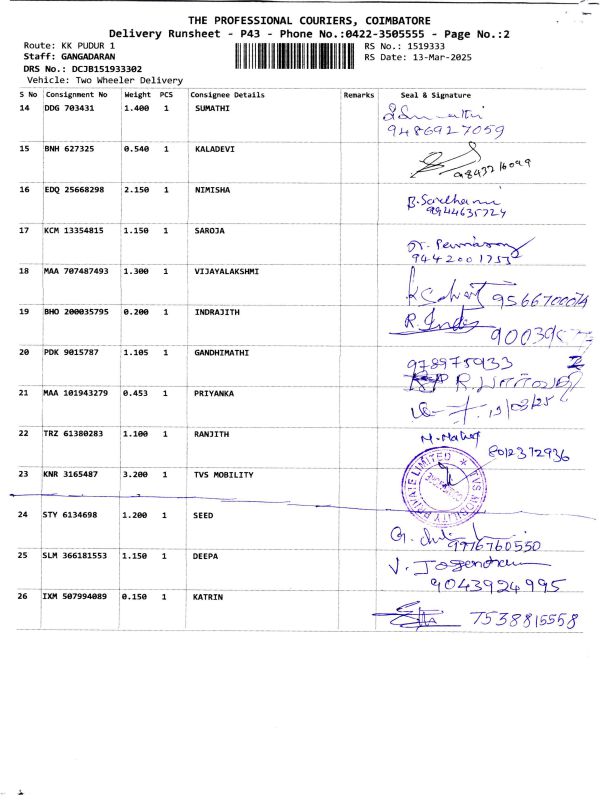 THE PROFESSIONAL COURIERS, COIMBATORE
Delivery Runsheet - P43 - Phone No.:0422-3505555 - Page No.:2
Route: KK PUDUR 1 RS No.: 1519333
Staff: GANGADARAN RS Date: 13-Mar-2025
DRS No.: DCJB151933302
Vehicle: Two Wheeler Delivery
S No Consignment No Weight PCS Consignee Details Remarks Seal & Signature
14 DDG 703431 1.400 1 SUMATHI
9486927059
15 BNH 627325 0.540 1 KALADEVI
16 EDQ 25668298 2.150 1 NIMISHA
17 KCM 13354815 1.150 1 SAROJA
9442001753
18 MAA 707487493 1.300 1 VIJAYALAKSHMI
19 BHO 200035795 0.200 1 INDRAJITH
20 PDK 9015787 1.105 1 GANDHIMATHI
978975933
21 MAA 101943279 0.453 1 PRIYANKA
22 TRZ 61380283 1.100 1 RANJITH
8012372936
23 KNR 3165487 3.200 1 TVS MOBILITY
TVS MOBILITY PRIVATE LIMITED
24 STY 6134698 1.200 1 SEED
9976760550
25 SLM 366181553 1.150 1 DEEPA
9043924995
26 IXM 507994089 0.150 1 KATRIN 7538815558